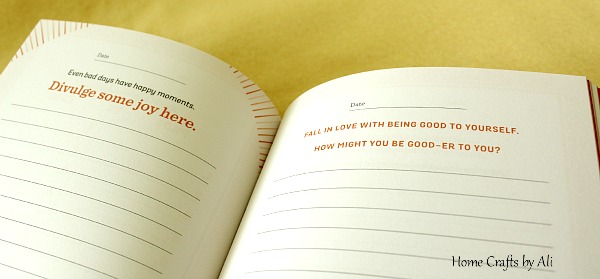 Date
Even bad days have happy moments.
Divulge some joy here.
Date
FALL IN LOVE WITH BEING GOOD TO YOURSELF.
HOW MIGHT YOU BE GOOD-ER TO YOU?
Home Crafts by Ali